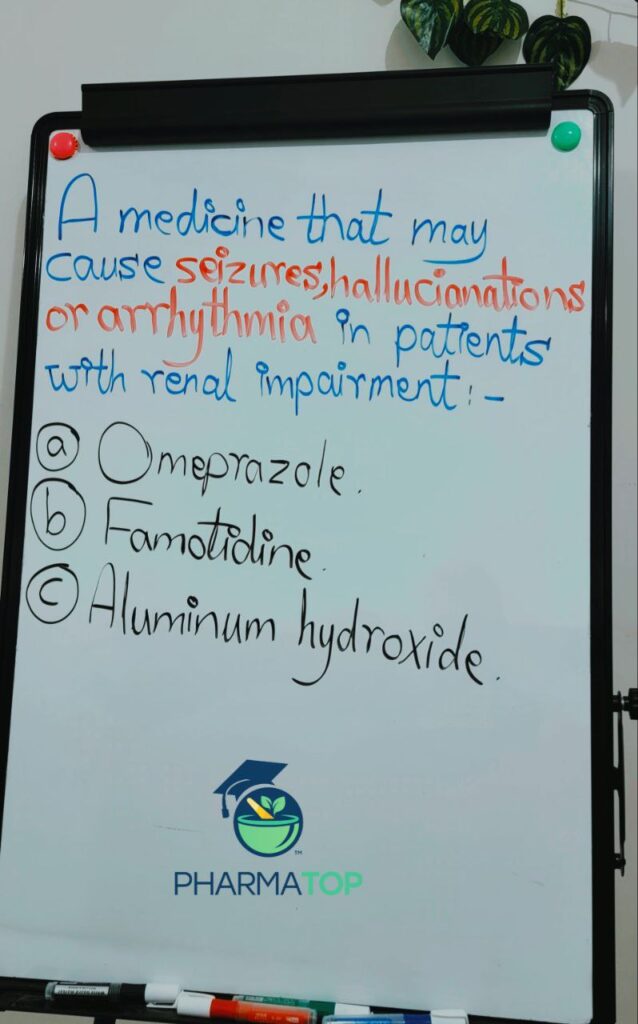 A medicine that may
cause seizures, hallucianations
or arrhythmia in patients
with renal impairment:-
a Omeprazole.
b Famotidine.
c Aluminum hydroxide.
TM
PHARMATOP